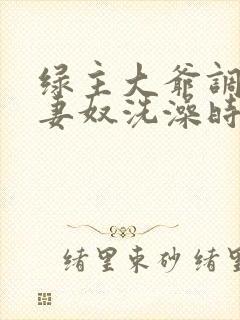 绿主大爷調
妻奴洗澡时
绪里束砂 绪里